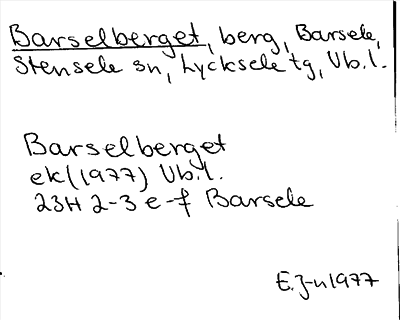 Barselberget, berg, Barsele,
Stensele sn, Lycksele tg, Vb.l.
Barselberget
ek (1977) Vb.l.
23H 2-3 e-f Barsele
E.J-n 1977